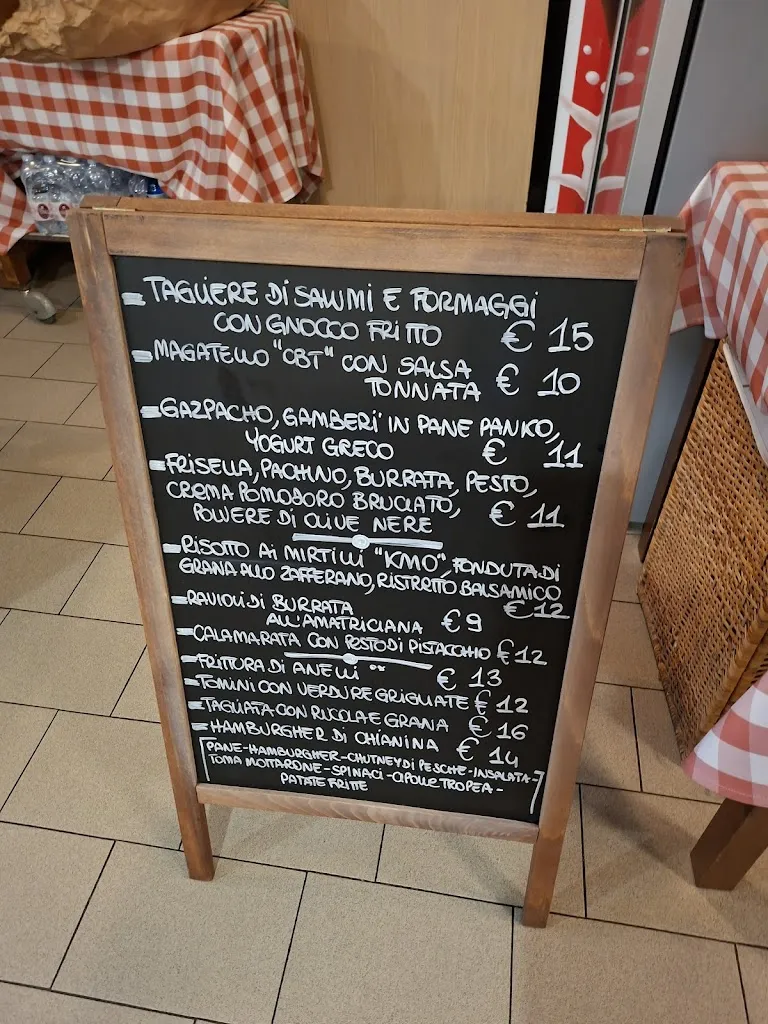 TAGLIERE DI SALUMI E FORMAGGI
CON GNOCCO FRITTO € 15
MAGATELLO "CBT" CON SALSA
TONNATA € 10
GAZPACHO, GAMBERI IN PANE PANKO,
YOGURT GRECO € 11
FRISELLA, PACHINO, BURRATA, PESTO,
CREMA POMODORO BRUCIATO,
POLVERE DI OLIVE NERE € 11
RISOTTO AI MIRTILLI "KM0", FONDUTA DI
GRANA ALLO ZAFFERANO, RISTRETTO BALSAMICO
€ 12
RAVIOLI DI BURRATA
ALL'AMATRICIANA € 9
CALAMARATA CON PESTO DI PISTACCHIO € 12
FRITTURA DI ANELLI ** € 13
TOMINI CON VERDURE GRIGLIATE € 12
TAGLIATA CON RUCOLA E GRANA € 16
HAMBURGHER DI CHIANINA € 14
PANE-HAMBURGHER-CHUTNEY DI PESCHE-INSALATA-
TOMA MOTTARONE-SPINACI-CIPOLLE TROPEA-
PATATE FRITTE